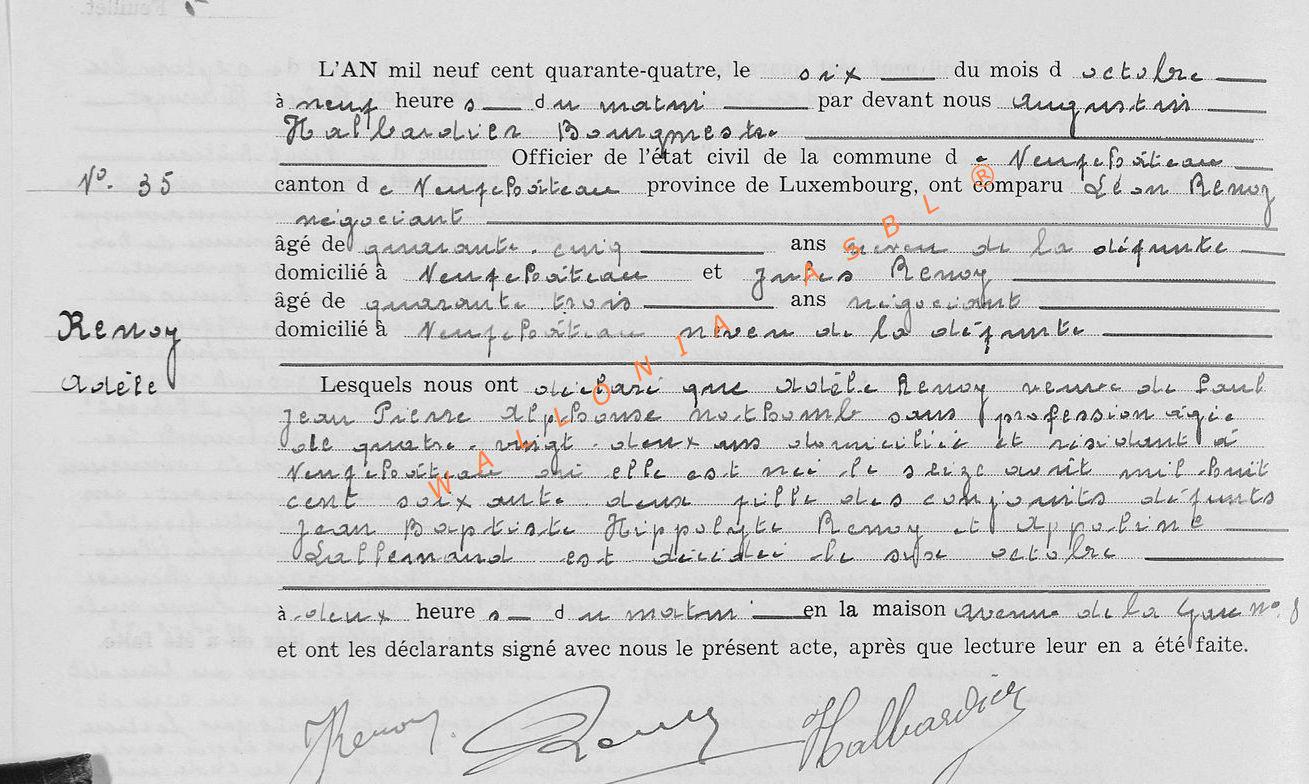 Feuillet.
L'AN mil neuf cent quarante-quatre, le six du mois d octobre
à neuf heure s du matin par devant nous Augustin
Halbardier Bourgmestre
Officier de l'état civil de la commune d e Neufchâteau
N°. 35
canton d e Neufchâteau province de Luxembourg, ont comparu Léon Renoy
négociant
âgé de quarante-cinq ans neveu de la défunte
domicilié à Neufchâteau et Jules Renoy
âgé de quarante trois ans négociant
Renoy
domicilié à Neufchâteau neveu de la défunte
Adèle
Lesquels nous ont déclaré que Adèle Renoy veuve de Paul
Jean Pierre Alphonse Nothomb sans profession âgée
de quatre-vingt-deux ans domiciliée et résidant à
Neufchâteau où elle est née le seize août mil huit
cent soixante deux fille des conjoints défunts
Jean Baptiste Hippolyte Renoy et Appoline
Lallemand est décédée le six octobre
à deux heure s du matin en la maison avenue de la Gare n°. 8
et ont les déclarants signé avec nous le présent acte, après que lecture leur en a été faite.
Renoy. Renoy Halbardier
WALLONIA ASBL ®